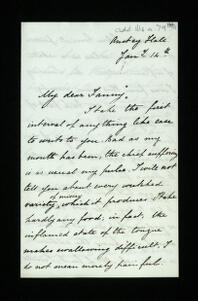 Add Ms a. 79/
Anstey Hall
Jan.y 14th
My dear Fanny,
I take the first
interval of anything like ease
to write to you. Bad as my
mouth has been, the chief suffering
is as usual my pulse. I will not
tell you about every wretched
variety of misery which it produces. I take
hardly any food, in fact, the
inflamed state of the tongue
makes swallowing difficult, I
do not mean merely painful.